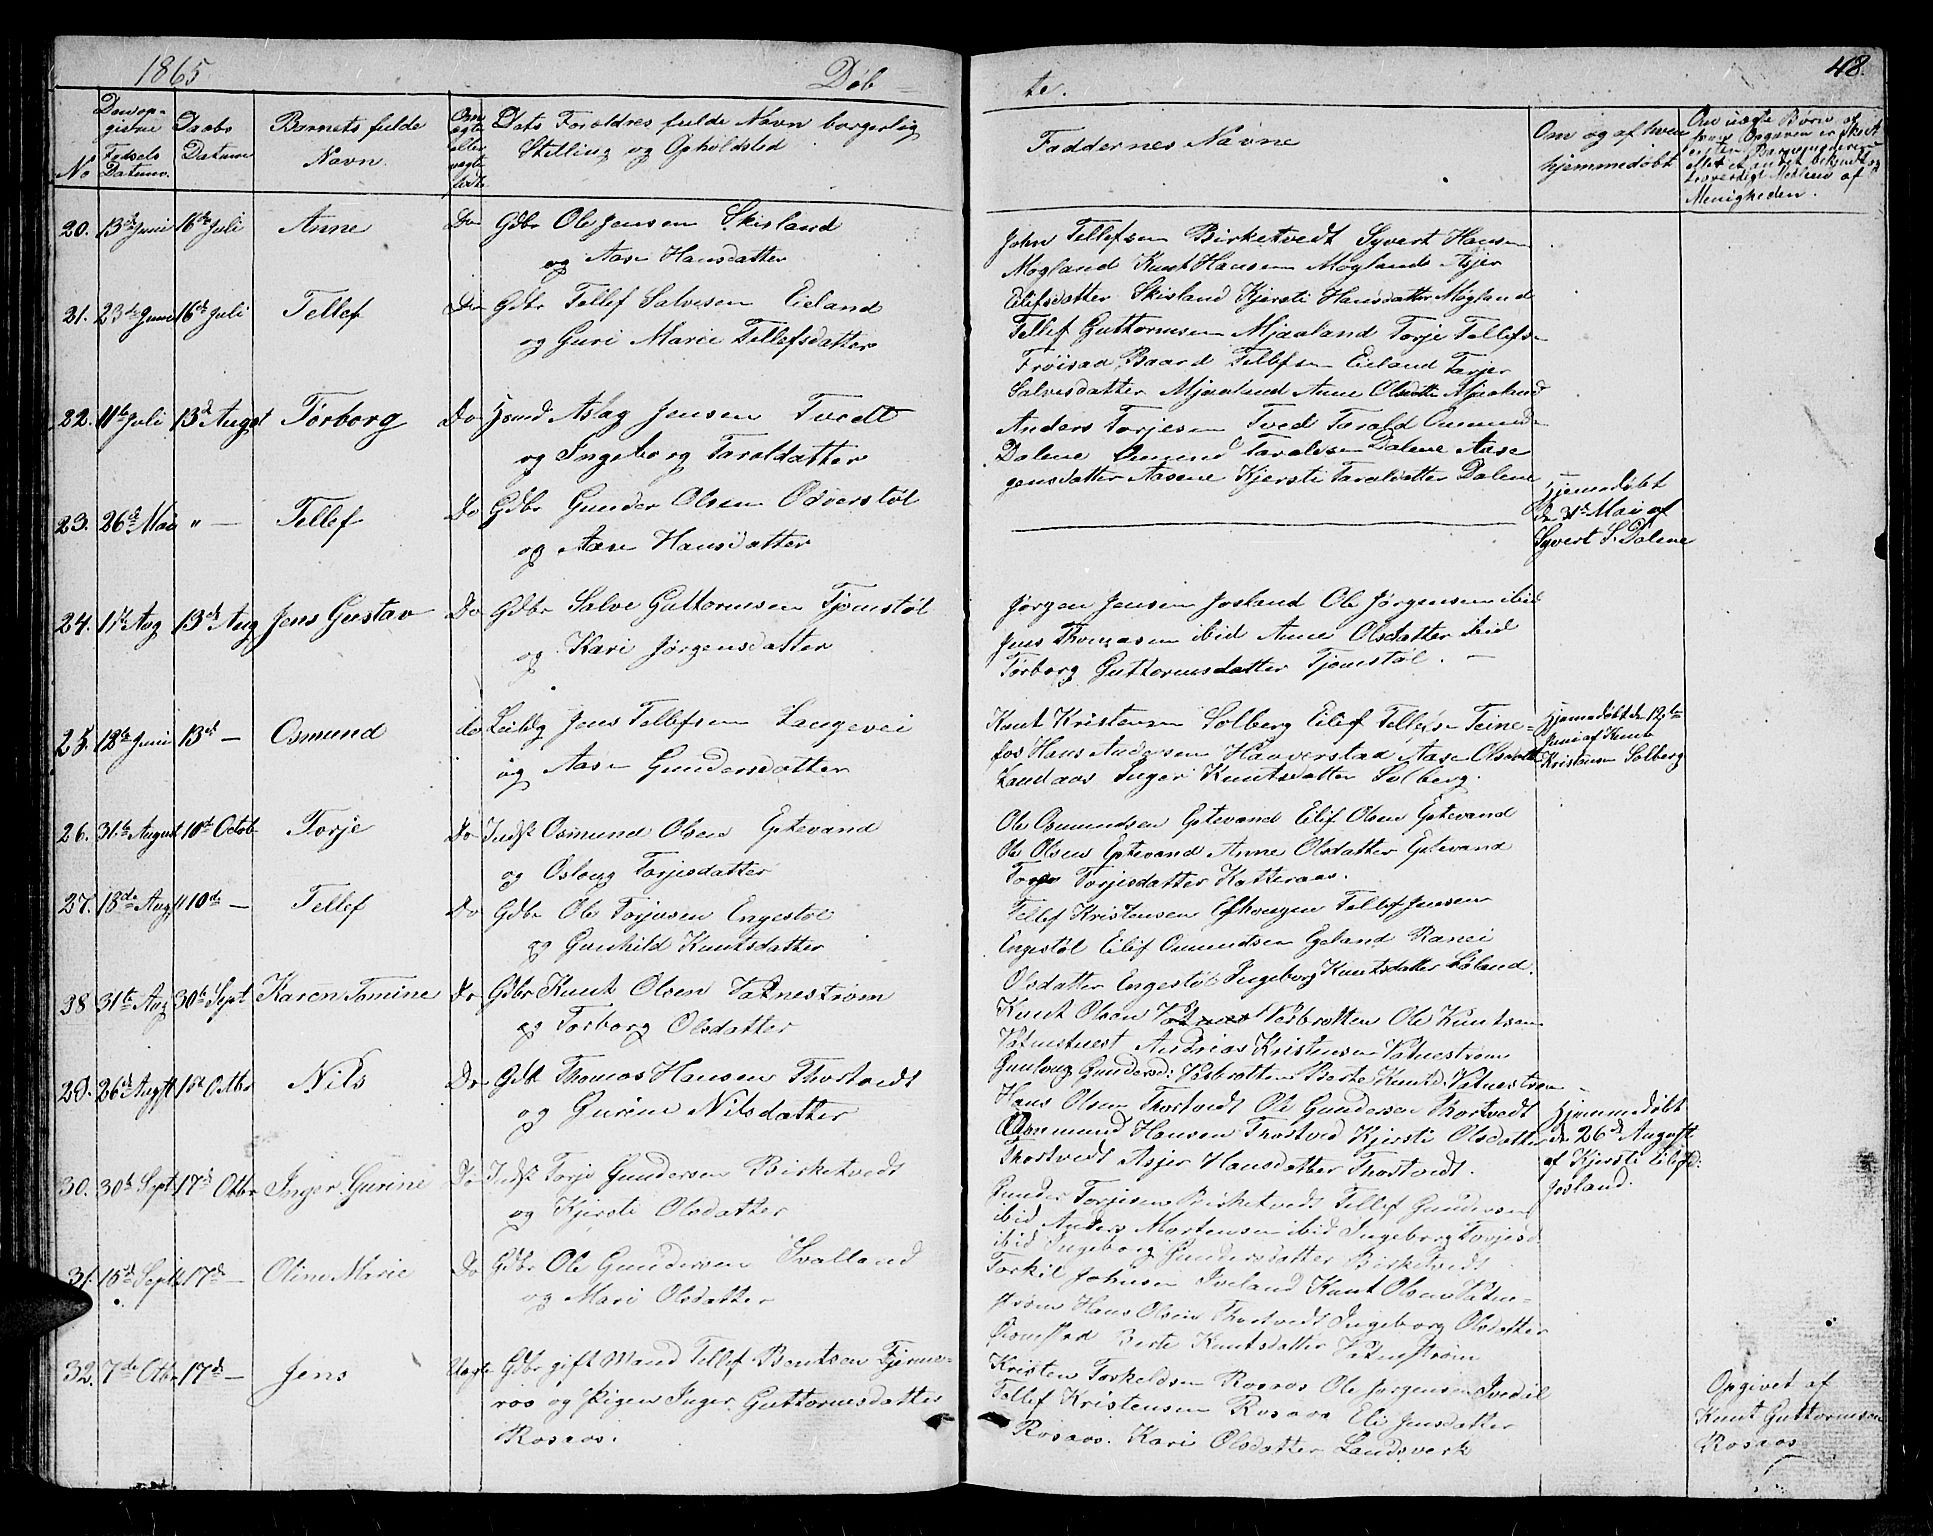 1865
Døb-
te.
48.
No
Den opgivne Fødsels Datum.
Daabs Datum
Barnets fulde Navn.
Om ægte eller uægte født.
Dets Forældres fulde Navn borgerlig Stilling og Opholdsted
Faddernes Navne
Om og af hvem hjemmedøbt
Om uægte Børn af hvem Opgiven er skeet
Menigheden.
20. 13de Juni 16de Juli Anne Do Gdbr Ole Jensen Skisland
og Aase Hansdatter
John Tellefsen Birketvedt Syvert Hansen
Møgland Knut Hansen Møgland Asjer
Eilifsdatter Skisland Kjersti Hansdatter Møgland
21. 23de Juni 16de Juli Tellef Do Gdbr Tellef Salvesen Eieland
og Guri Marie Tellefsdatter
Tellef Guttormsen Mjaaland Torje Tellefs-
Frøisaa Baard Tellefsen Eieland Tarjer
Salvesdatter Mjaaland Anne Olsdatte Mjaaland
22. 11te Juli 13d Augst Torborg Do Hsmd Aslag Jensen Tvedt
og Ingeborg Taroldatter
Anders Torjesen Tved Tarald Omund-
Dalene Omund Taraldsen Dalene Aase
Jensdatter Aasene Kjersti Taraldatter Dalene
23. 26de Mai " — Tellef Do Gdbr Gunder Olsen Odverstøl
og Aase Hansdatter
Hjemmedøbt
den 31d Mai af
Syvert S. Dalene
24. 1ste Aug 13de Aug Jens Gustav Do Gdbr Salve Guttormsen Tjomstøl
og Kari Jørgensdatter
Jørgen Jensen Josland Ole Jørgensen ibid
Jens Thomasen ibid Anne Olsdatter ibid
Torborg Guttormsdatter Tjomstøl. —
25. 12te Juni 13de — Osmund do Leildg Jens Tellefsen Langevei
og Aase Gundersdatter
Knut Kristensen Solberg Eilef Tellefsn Feine-
fos Hans Andersen Haaverstad Aase Olsdatt
Landaas Inger Knutsdatter Solberg.
Hjemmedøbt de 12te
Juni af Knut
Kristensen Solberg
26. 31te August 10de Octob Torje Do Indst Osmund Olsen Eptevand
og Osloug Torjesdatter
Ole Osmundsen Eptevand Eilif Olsen Eptevand
Ole Olsen Eptevand Anne Olsdatter Eptevand
Torjer Torjesdatter Katteraas.
27. 18de Aug 10de — Tellef Do Gdbr Ole Torjusen Engestøl
og Gunhild Knutsdatter
Tellef Kristensen Tellef Jensen
Engestøl Eilef Omundsen Egeland Ranei
Olsdatter Engestøl Ingeborg Knutsdatter
38 31te Aug 30te Sept Karen Tomine Do Gdbr Knut Olsen Vatnestrøm
og Torborg Olsdatter
Knut Olsen Vesbrotten Ole Knutsen
Vatnstvest Andrias Kristensen Vatnestrøm
Gunloug Gundersd: Vesbrotten Berte Knutsd. Vatnestrøm
29. 26de Augst 1ste Octbr Nils Do Gdb Thomas Hansen Thortvedt
og Gurine Nilsdatter
Hans Olsen Thortvedt Ole Gundersen Thortvedt
Osmund Hansen Thortved Kjersti Olsdatter
Thortvedt Asjer Hansdatter Thortvedt.
Hjemmedøbt
de 26d August
af Kjersti Eilefsd.
Josland.
30. 30te Sept 17de Otbr Inger Gurine Do Indst Torje Gundersen Birketvedt
og Kjersti Olsdatter
Gunder Torjesen Birketvedt Tellef Gundersen
ibid Anders Mortensen ibid Ingeborg Torjesd
ibid Ingeborg Gundersdatter Birketvedt
31. 15de Sept 17de — Oline Marie Do Gdbr Ole Gundersen Svalland
og Mari Olsdatter
Torkil Johnsen Iveland Knut Olsen Vatne-
strøm Hans Olsen Thortvedt Ingeborg Olsdatter
Berte Knutsdatter Vatnestrøm
32. 7de Otbr 17de — Jens Uægte Gdbr gift Mand Tellef Bentsen Fjerme-
ros og Pigen Inger Guttormsdatter
Rosaas.
Kristen Torkeldsen Rosaas Ole Jørgensen Ivedil
Tellef Kristensen Rosaas Eli Jensdatter
Rosaas. Kari Olsdatter Landsverk
Opgivet af
Knut Guttormsen
Rosaas